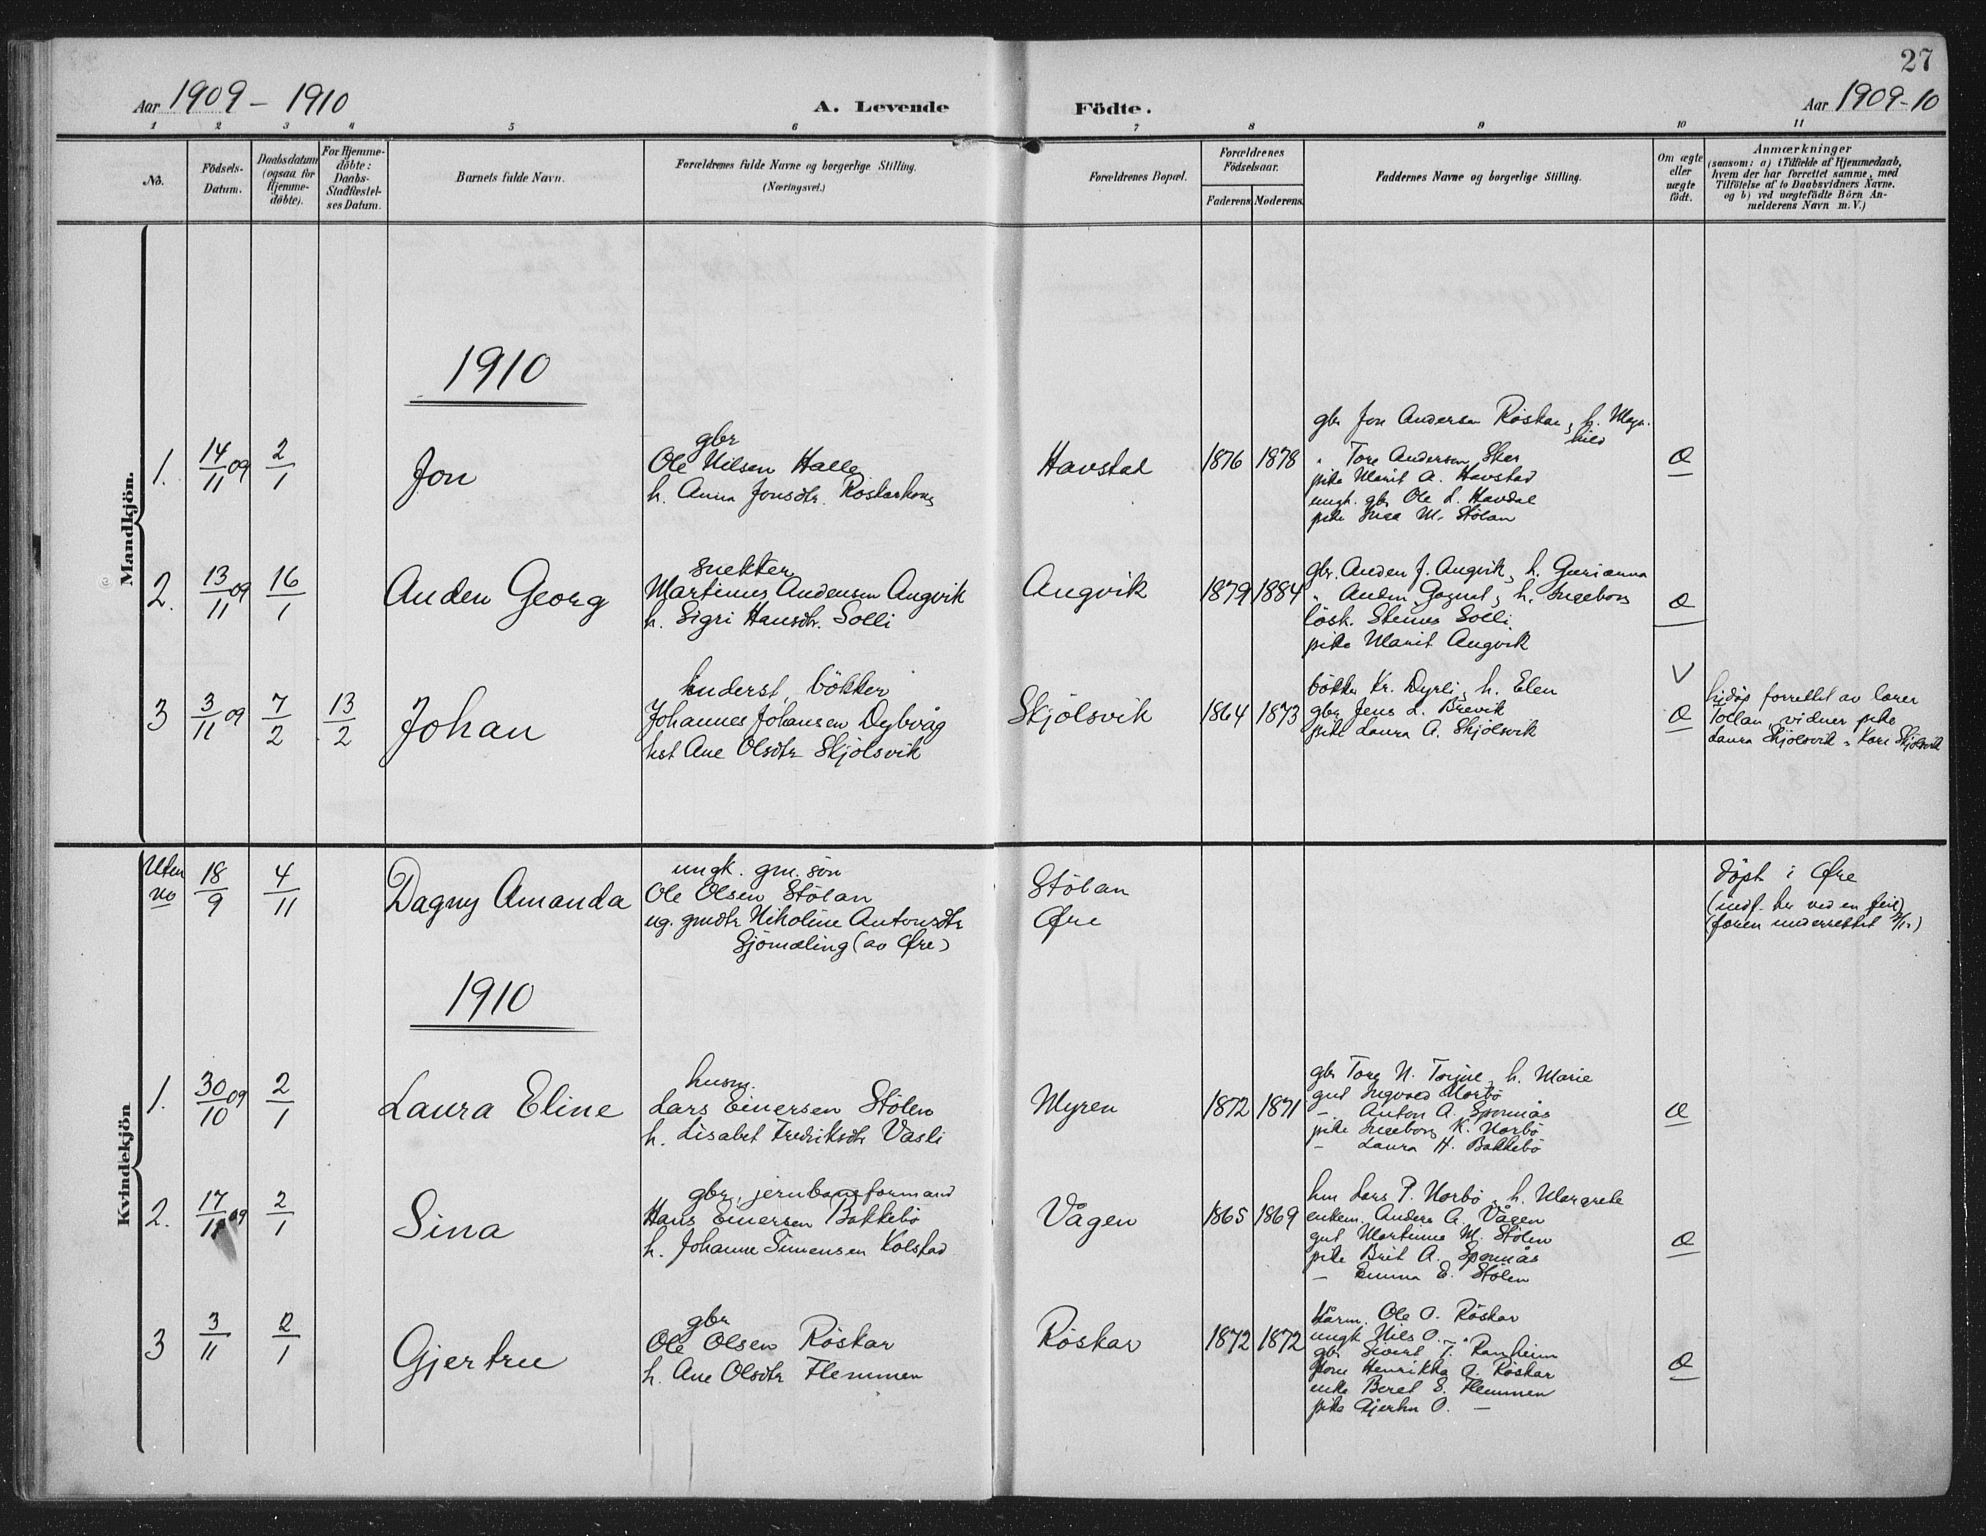 27
Aar 1909 - 1910
A. Levende Födte.
Aar 1909-10
1 2 3 4 5 6 7 8 9 10 11
No.
Födsels-
Datum.
Daabsdatum
(ogsaa for
Hjemme-
döbte).
For Hjemme-
döbte:
Daabs-
Stadfæstel-
ses Datum.
Barnets fulde Navn.
Forældrenes fulde Navne og borgerlige Stilling.
(Næringsvei.)
Forældrenes Bopæl.
Forældrenes
Födselsaar.
Faderens
Moderens
Faddernes Navne og borgerlige Stilling.
Om ægte
eller
uægte
födt.
Anmærkninger
(saasom: a) i Tilfælde af Hjemmedaab,
hvem der har forrettet samme, med
Tilföielse af to Daabsvidners Navne.
og b) ved uægtefödte Börn An-
melderens Navn m. V.)
Mandkjön.
1910
1. 14/11 09 2/1
Jon
gbr
Ole Nilsen Halle
h. Anna Jonsdtr. Röskarhaug
Havstad
1876 1878
gbr Jon Andersen Röskar, h. Magn-
hild
" Tore Andersen Sker
pike Marit A. Havstad
ungk. gbr Ole L. Havdal
pike M. Stölan
Æ
2. 13/11 09 16/1
Anders Georg
snekker
Martinus Andersen Angvik
h. Sigri Hansdtr. Solli
Angvik
1879 1884
gbr. Anders J. Angvik, h. Gurianna
" Anders Gagnat, h. Ingeborg
lösk. Steines Solli
pike Marit Angvik
Æ
3 3/11 09 7/2 13/2
Johan
inderst, bökker
Johannes Johansen Dybvåg
hst Ane Olsdtr Skjölsvik
Skjölsvik
1864 1873
bökker Kr. Dyrli, h. Elen
gbr Jens L. Brevik
pike Laura A. Skjölsvik
V
Æ
hjdåp forrettet av lærer
Tollan, vidner pike
Laura Skjölsvik " Kari Skjölsvik
Kvindekjön
Uten
no
18/9 4/11
Dagny Amanda
ungk. gm. sön
Ole Olsen Stölan
ug. gmdtr Nikoline Antonsdtr
Sjömæling (av Øre)
Stölan
Øre
döpt i Øre
(indf. her ved en feil)
1910
1. 30/10 09 2/1
Laura Eline
husm.
Lars Einersen Stölen
h. Lisabet Fredriksdtr Vasli
Myren
1872 1871
gbr Tore N. Torjul, h. Marie
gut Ingvald Norbö
- Anton A. Spornås
pike Ingeborg K. Norbö
- Laura H. Bakkebö
Æ
2. 17/11 09 2/1
Sina
gbr, jernbaneformand
Hans Einersen Bakkebö
h. Johanne Simensen Kolstad
Vågen
1865 1869
hm Lars P. Norbö, h. Margrete
enkem. Anders A. Vågen
gut Martinus M. Stölen
pike Brit A. Spornås
- Emma E. Stölen
Æ
3 3/11 2/1
Gjertru
gbr
Ole Olsen Röskar
h. Ane Olsdtr Flemmen
Röskar
1872 1872
kårm. Ole O. Röskar
ungk Nils O. "
gbr Sivert T. Ranheim
kone Henrikka O. Röskar
enke Beret E. Flemmen
pike Gjertru O. -
Æ